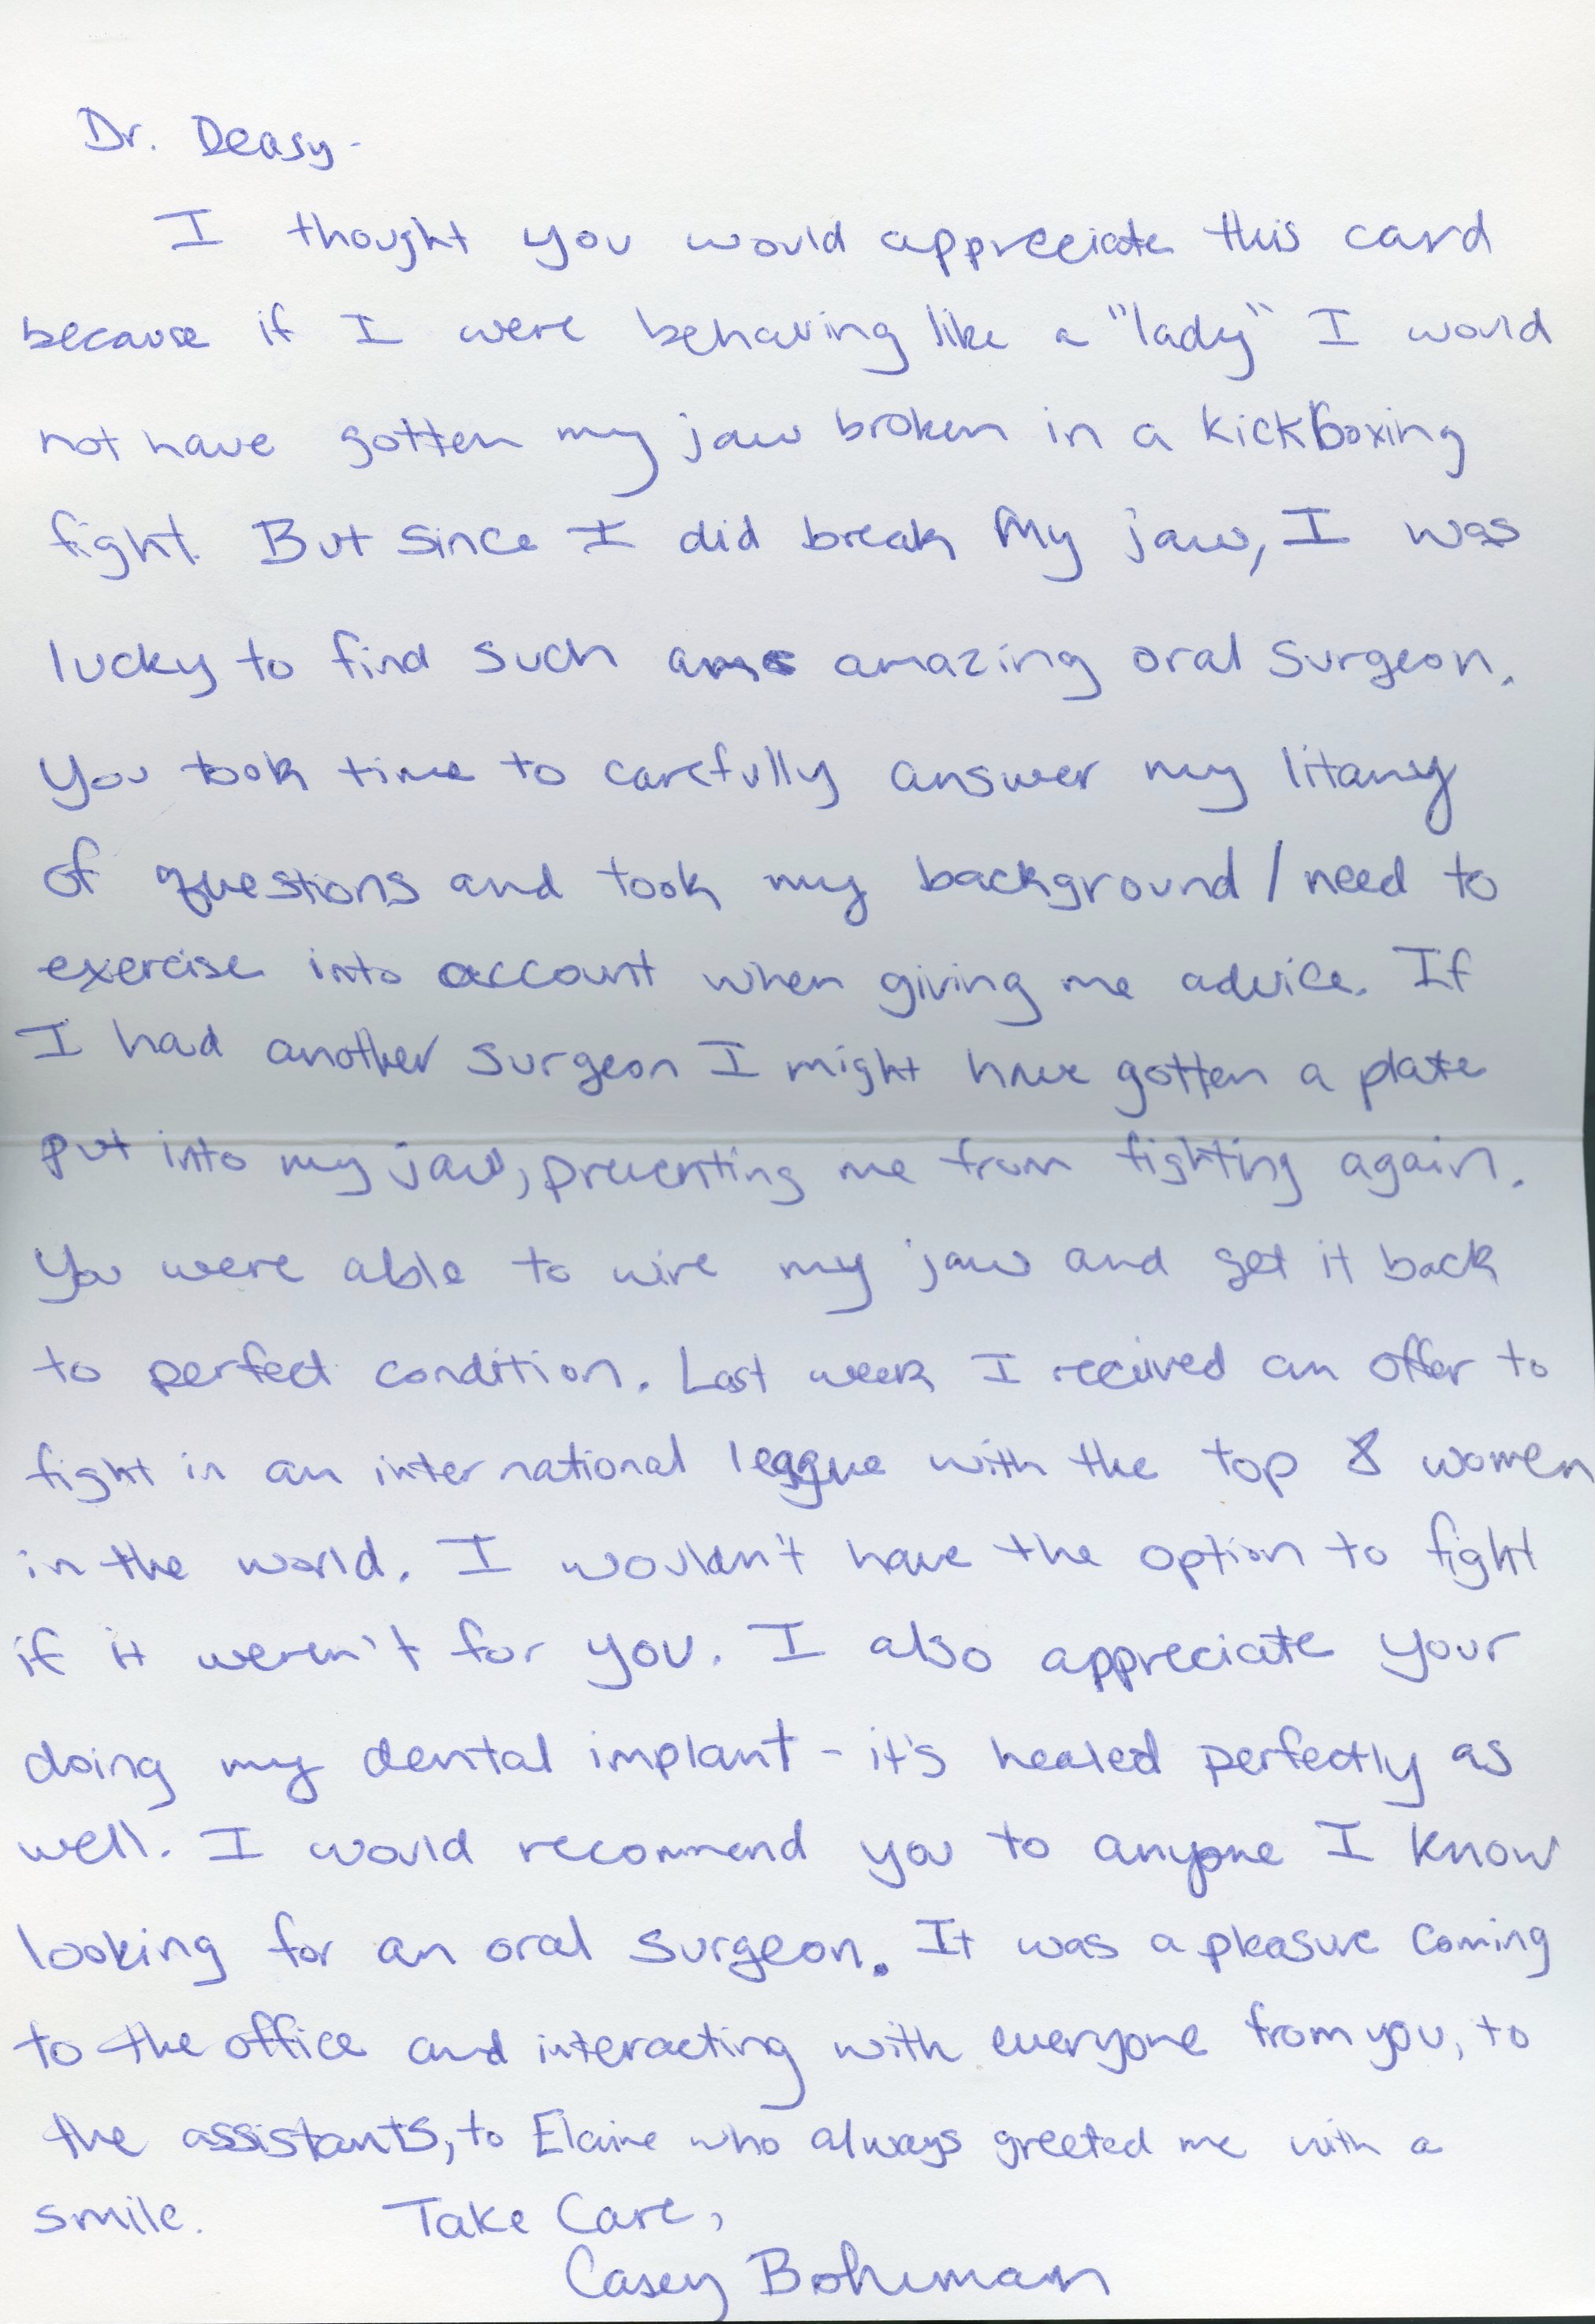 Dr. Deasy-
I thought you would appreciate this card
because if I were behaving like a "lady" I would
not have gotten my jaw broken in a kickboxing
fight. But since I did break my jaw, I was
lucky to find such amazing oral surgeon.
You took time to carefully answer my litany
of questions and took my background/need to
exercise into account when giving me advice. If
I had another surgeon I might have gotten a plate
put into my jaw, preventing me from fighting again.
You were able to wire my jaw and get it back
to perfect condition. Last week I received an offer to
fight in an international league with the top 8 women
in the world. I wouldn't have the option to fight
if it weren't for you. I also appreciate your
doing my dental implant - it's healed perfectly as
well. I would recommend you to anyone I know
looking for an oral surgeon. It was a pleasure coming
to the office and interacting with everyone from you, to
the assistants, to Elaine who always greeted me with a
smile. Take Care,
Casey